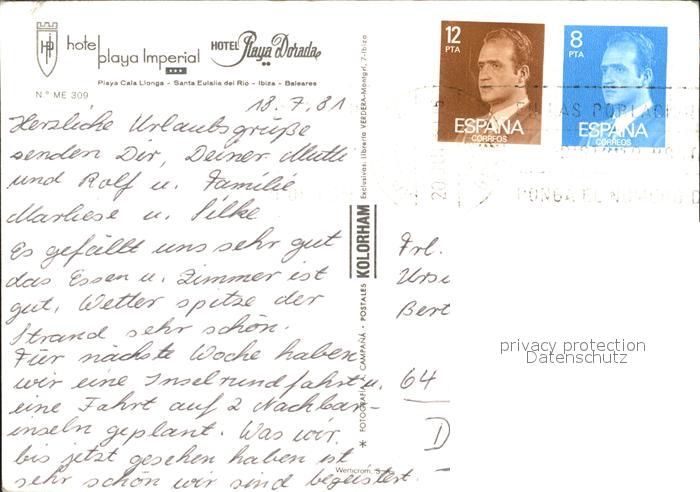 hotel
playa Imperial
HOTEL Playa Dorada
Playa Cala Llonga - Santa Eulalia del Rio - Ibiza - Baleares
N.º ME 309
18.7.81
Herzliche Urlaubsgrüße
senden Dir, Deiner Mutti
und Rolf u. Familie
Marliese u. Silke
Es gefällt uns sehr gut
das Essen u. Zimmer ist
gut, Wetter spitze der
Strand sehr schön.
Für nächste Woche haben
wir eine Inselrundfahrt u.
eine Fahrt auf 2 Nachbar-
inseln geplant. Was wir
bis jetzt gesehen haben ist
sehr schön wir sind begeistert.
Exclusivas: Librería VERDERA-Montgrí, 7-Ibiza
* FOTOGRAFIA CAMPAÑÁ • POSTALES KOLORHAM
Werticrom, S.
12
PTA
ESPAÑA
CORREOS
8
PTA
ESPAÑA
CORREOS
POBLAC
PONGA EL NUMERO D
20
Frl.
Ursi
Bert
64
D
privacy protection
Datenschutz